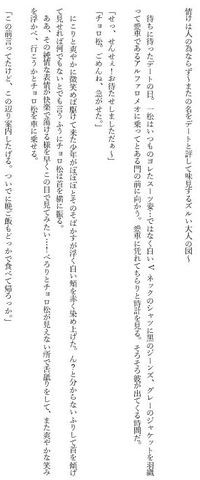 情けは人の為ならず～またの名をデートと評して味見するズルい大人の図～
待ちに待ったデートの日。一松はいつものヨレたスーツ姿…ではなく白いVネックのシャツに黒のジーンズ、グレーのジャケットを羽織
って愛車であるアルファロメオに乗ってとある門の前に向かう。愛車に凭れてちらりと時計を見る。そろそろ彼が出てくる時間だ。
「せっ、せんせぇ！お待たせしましただぁ～」
「チョロ松。ごめんね、急がせた。」
にこりと爽やかに微笑めば駆けて来た少年がほわほわとそのそばかすが浮く白い頬を赤く染め上げた。ん？と分からないふりして首を傾げ
て見せれば何でもないとでも言うようにチョロ松は首を横に振る。
あ、その純情な表情が快楽で蕩ける様を早くこの目で見てみたい…！ぺろりとチョロ松が見えない所で舌舐りをして、また爽やかな笑み
を浮かべ、行こうかとチョロ松を車に乗せる。
「この前言ってたけど、この辺り案内したげる。ついでに晩ご飯もどっかで食べて帰ろっか。」